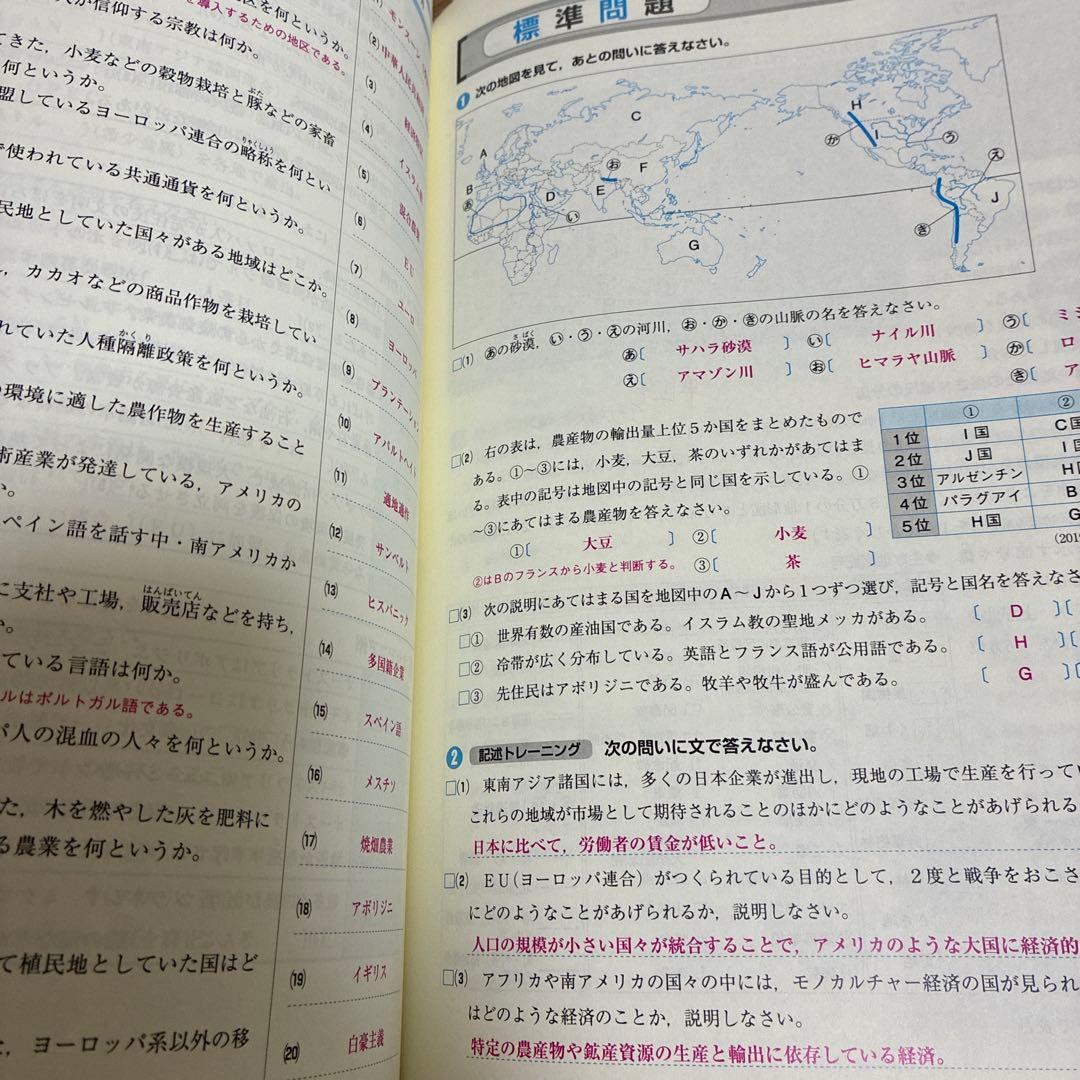 区を何というか。
を導入するための地区である。
が信仰する宗教は何か。
てきた，小麦などの穀物栽培と豚などの家畜
何というか。
盟しているヨーロッパ連合の略称を何とい
で使われている共通通貨を何というか。
民地としていた国々がある地域はどこか。
，カカオなどの商品作物を栽培してい
れていた人種隔離政策を何というか。
の環境に適した農作物を生産すること
術産業が発達している，アメリカの
か。
ペイン語を話す中・南アメリカか
に支社や工場，販売店などを持ち，
か。
ている言語は何か。
ルはポルトガル語である。
パ人の混血の人々を何というか。
た，木を燃やした灰を肥料に
る農業を何というか。
て植民地としていた国はど
た，ヨーロッパ系以外の移
モンスーン
(2) 中華人民共和国
(3)
(4) イスラム教
(5) 混合農業
(6) EU
(7) ユーロ
(8) ヨーロッパ
(9) プランテーション
(10) アパルトヘイト
(11) 適地適作
(12) サンベルト
(13) ヒスパニック
(14) 多国籍企業
(15) スペイン語
(16) メスチソ
(17) 焼畑農業
(18) アボリジニ
(19) イギリス
(20) 白豪主義
標準問題
1 次の地図を見て，あとの問いに答えなさい。
A
B
C
D
E
F
G
H
I
J
あ
い
う
え
お
か
き
□(1) あの砂漠，い・う・えの河川，お・か・きの山脈の名を答えなさい。
あ〔 サハラ砂漠 〕 い〔 ナイル川 〕 う〔 ミシ
え〔 アマゾン川 〕 お〔 ヒマラヤ山脈 〕 か〔 ロ
き〔 ア
□(2) 右の表は，農産物の輸出量上位５か国をまとめたもので
ある。①〜③には，小麦，大豆，茶のいずれかがあてはま
る。表中の記号は地図中の記号と同じ国を示している。①
〜③にあてはまる農産物を答えなさい。
①〔 大豆 〕 ②〔 小麦 〕
②はBのフランスから小麦と判断する。 ③〔 茶 〕
① ②
1位 I国 C国
2位 J国 I国
3位 アルゼンチン H国
4位 パラグアイ B
5位 H国 G
(2019
□(3) 次の説明にあてはまる国を地図中のA〜Jから１つずつ選び，記号と国名を答えなさ
□① 世界有数の産油国である。イスラム教の聖地メッカがある。 〔 D 〕〔
□② 冷帯が広く分布している。英語とフランス語が公用語である。 〔 H 〕〔
□③ 先住民はアボリジニである。牧羊や牧牛が盛んである。 〔 G 〕〔
2 記述トレーニング 次の問いに文で答えなさい。
□(1) 東南アジア諸国には，多くの日本企業が進出し，現地の工場で生産を行ってい
これらの地域が市場として期待されることのほかにどのようなことがあげられる
日本に比べて，労働者の賃金が低いこと。
□(2) EU(ヨーロッパ連合）がつくられている目的として，２度と戦争をおこさ
にどのようなことがあげられるか，説明しなさい。
人口の規模が小さい国々が統合することで，アメリカのような大国に経済的
□(3) アフリカや南アメリカの国々の中には，モノカルチャー経済の国が見られ
はどのような経済のことか，説明しなさい。
特定の農産物や鉱産資源の生産と輸出に依存している経済。